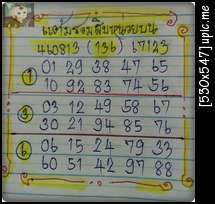 460813 (136) 67123
① 01 29 38 47 65
10 92 83 74 56
③ 03 12 49 58 67
30 21 94 85 76
⑥ 06 15 24 79 33
60 51 42 97 88
[530x547] upic.me